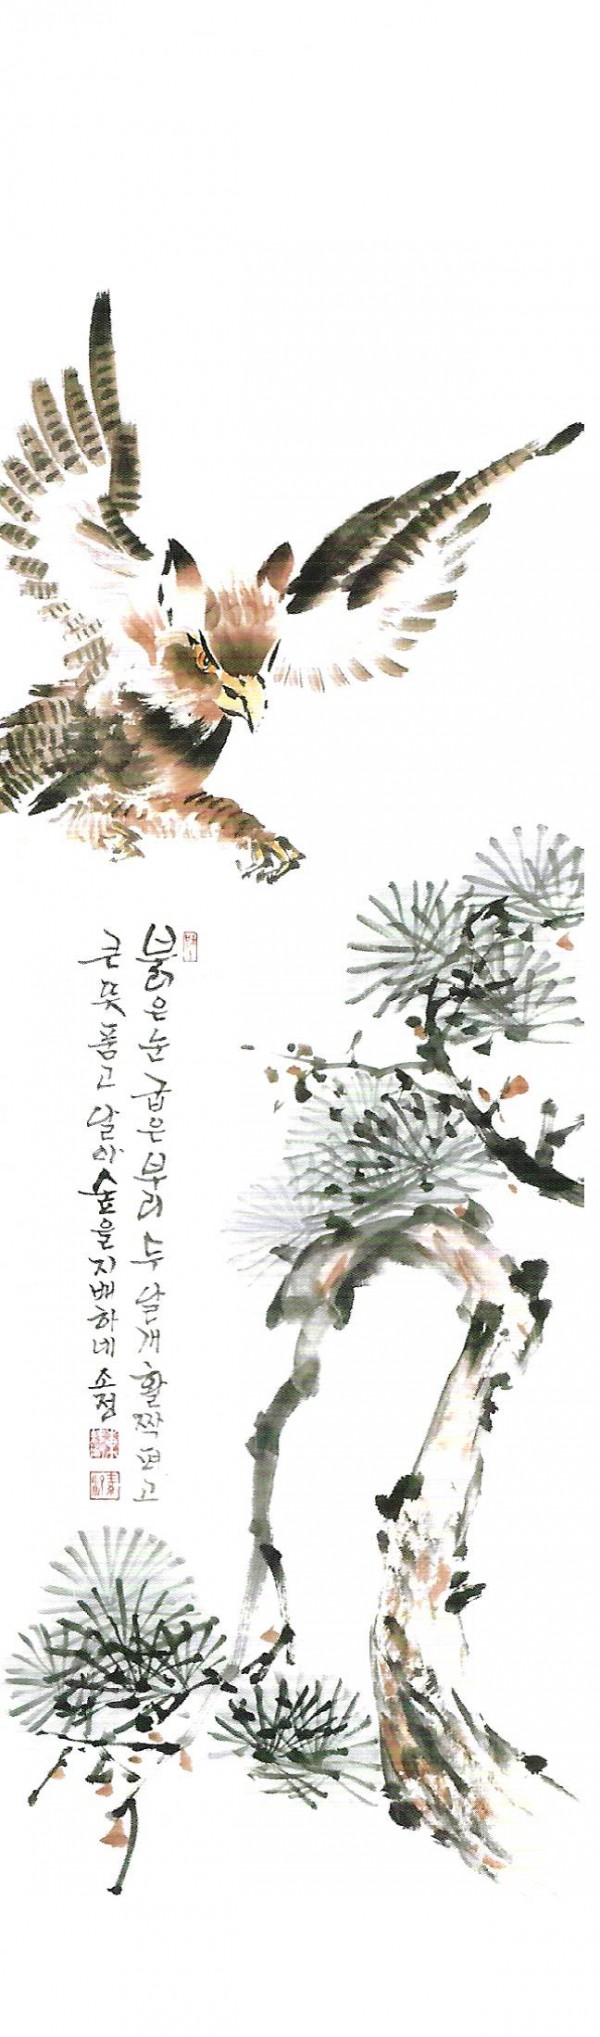 붉은 눈 굽은 부리 두 날개 활짝 펴고
큰 뜻 품고 날아 숲을 지배하네 소정